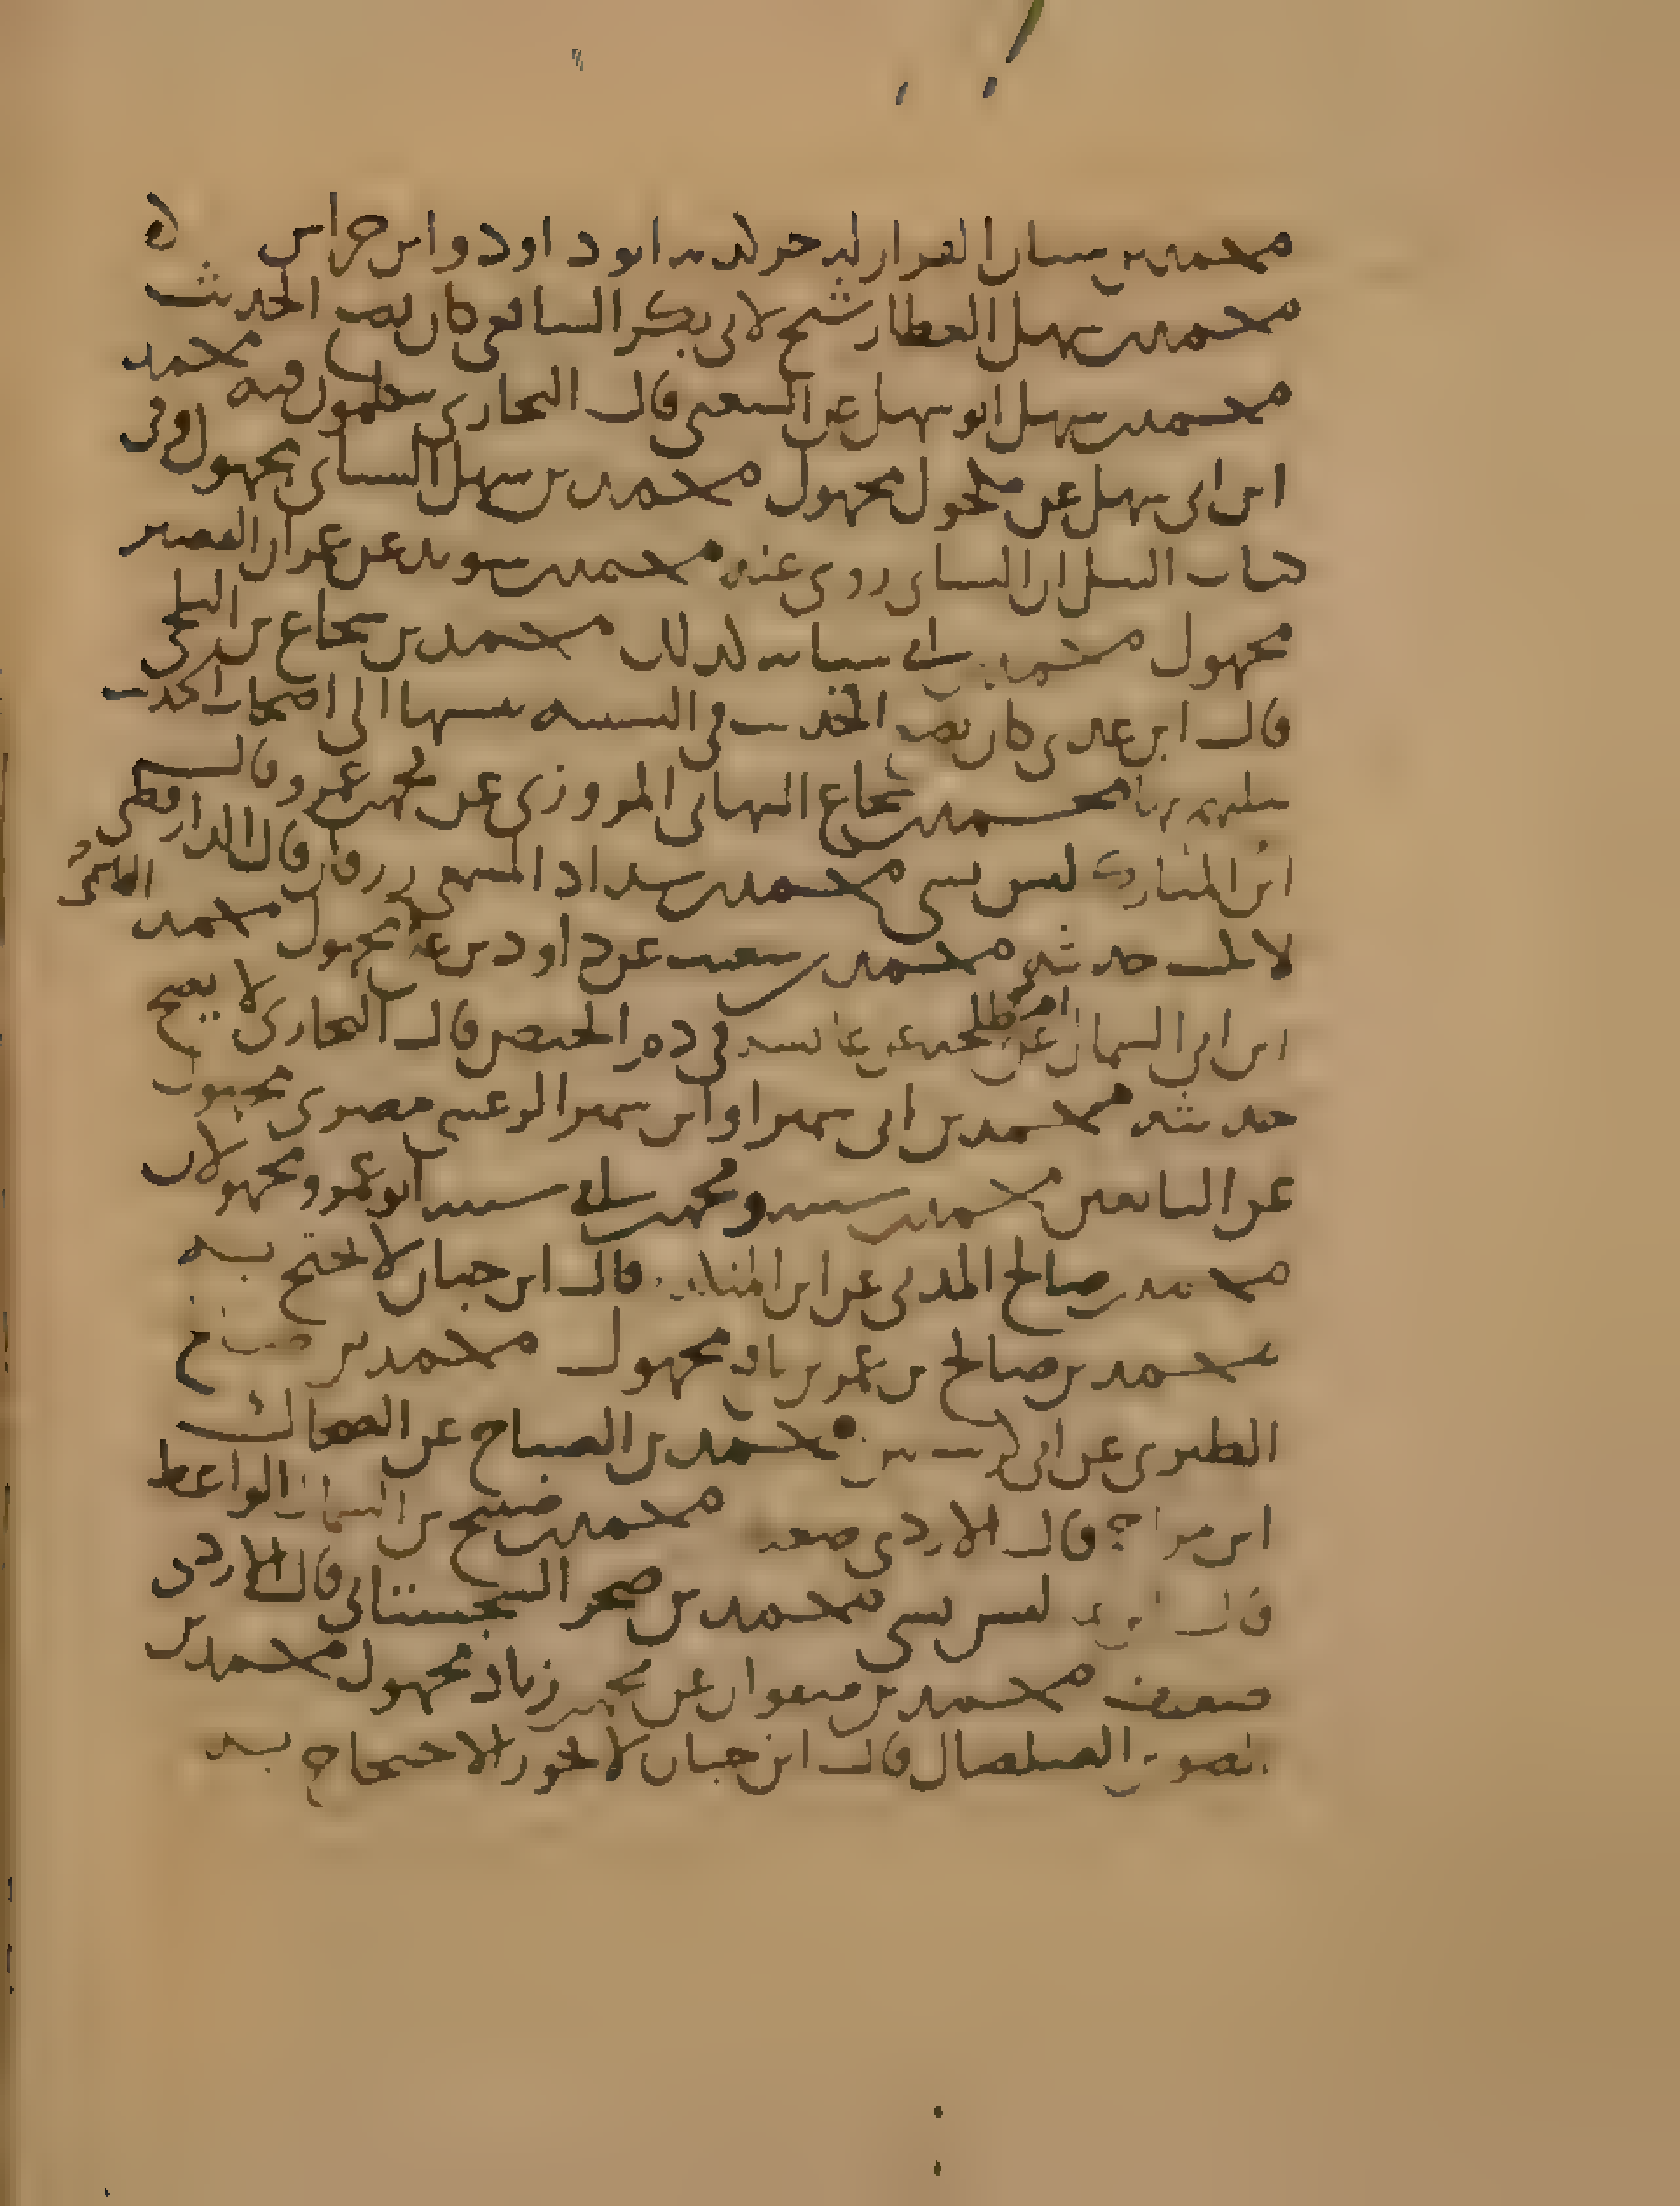 محمد بن سنان القزاز له جزء كذبه ابو داود وابن خراش
محمد بن سهل العطار شيخ لابي بكر الشافعي كان يضع الحديث
محمد بن سهل ابو سهل عن الشعبي قال البخاري يتكلمون فيه محمد
ابن ابي سهل عن مكحول مجهول محمد بن سهل النسائي مجهول وفي
كتاب النبل ان النسائي روى عنه محمد بن سويد عن عمران القصير
مجهول محمد بن ابي سيابه كذلك محمد بن شجاع بن الثلجي
قال ابن عدي كان يضع الحديث في التشبيه ينسبها الى اصحاب الحديث
محمد بن شجاع النبهاني المروزي عن محمد بن عمرو قال
ابن المبارك ليس بشي محمد بن شداد المسمعي زرقان قال الدارقطني
لا يكتب حديثه محمد بن شعيب عن داود بن علي مجهول محمد
ابن ابي الشمال عن ام طلحة عن عائشه في دم الحيض قال البخاري لا يصح
حديثه محمد بن ابي سمير او ابن سمير الرعيني مصري مجهول
عن التابعين محمد بن شيبه ومحمد بن ابي شيبه ابو عمرو مجهولان
محمد بن صالح المدني عن ابن المنكدر قال ابن حبان لا يحتج به
محمد بن صالح بن عمر بن زياد مجهول محمد بن صالح
الطبري عن ابي كريب محمد بن الصباح عن الضحاك
ابن مزاحم قال الازدي ضعيف محمد بن صبيح بن السماك الواعظ
قال ابن نمير ليس بشي محمد بن صخر السجستاني قال الازدي
ضعيف محمد بن صفوان عن محمد بن زياد مجهول محمد بن
الصلصال قال ابن حبان لا يجوز الاحتجاج به